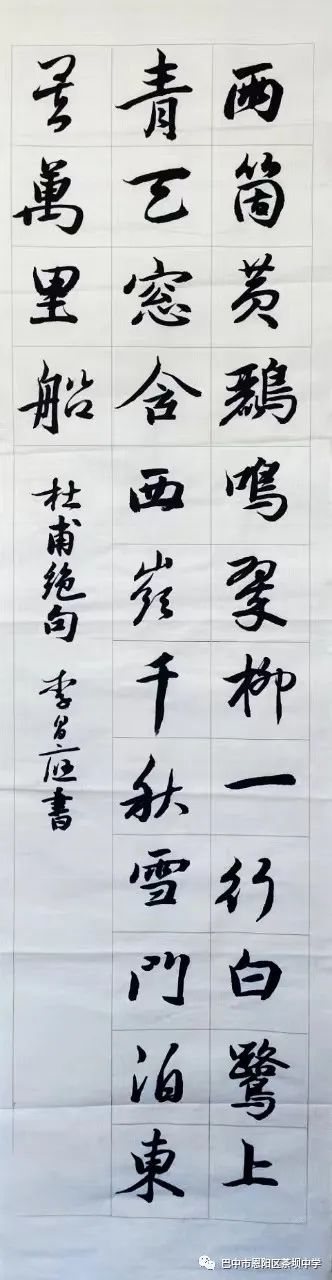 兩箇黄鸝鳴翠柳一行白鷺上
青天窓含西嶺千秋雪門泊東
吴萬里船
杜甫絶句 李昌書
巴中市恩阳区茶坝中学